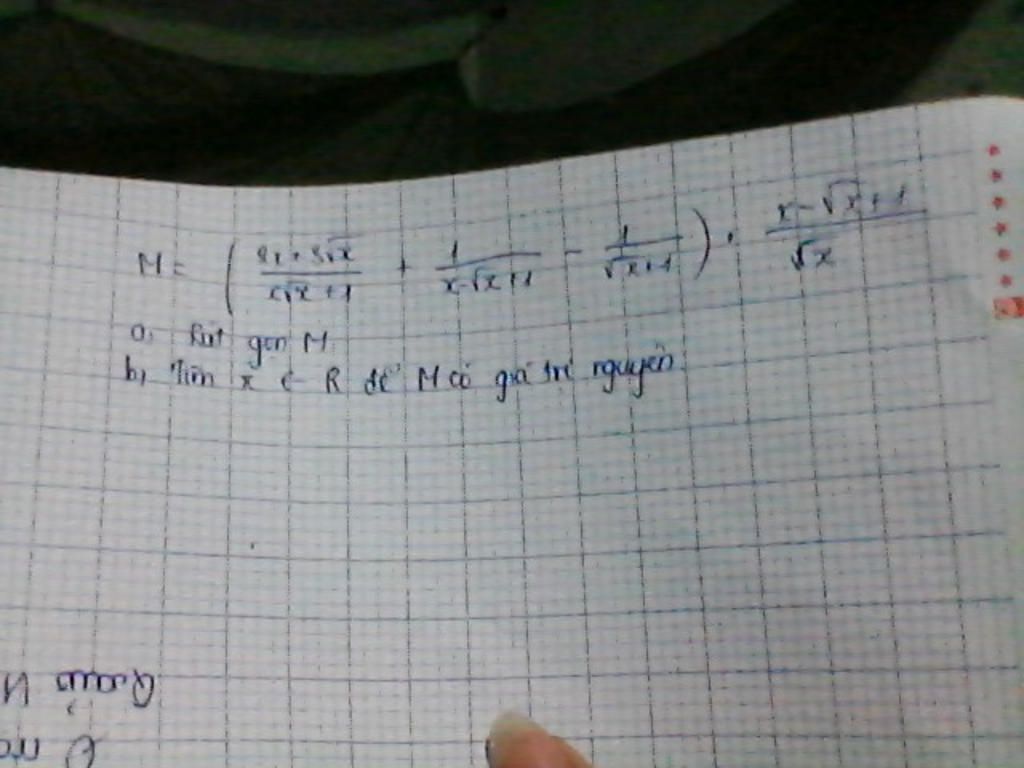 M = ( (2x + 3√x)/(x√x + 1) + 1/(x - √x + 1) - 1/(√x + 1) ) . (x - √x + 1)/√x
a, Rút gọn M
b, Tìm x ∈ R để M có giá trị nguyên